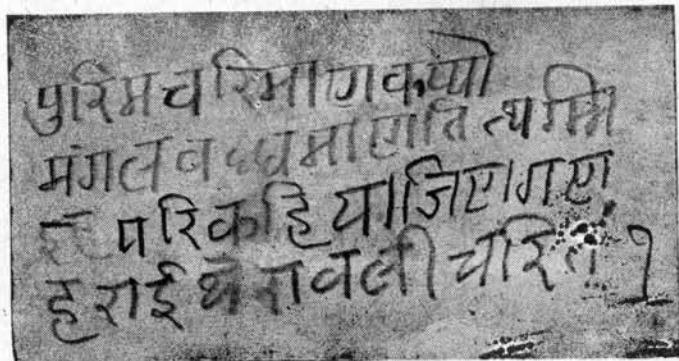 पुरिमचरिमाणकप्पो
मंगलवध्धमाणतित्थम्मि
परिकहियाजिणगण
हराईथेरावलीचरितं १